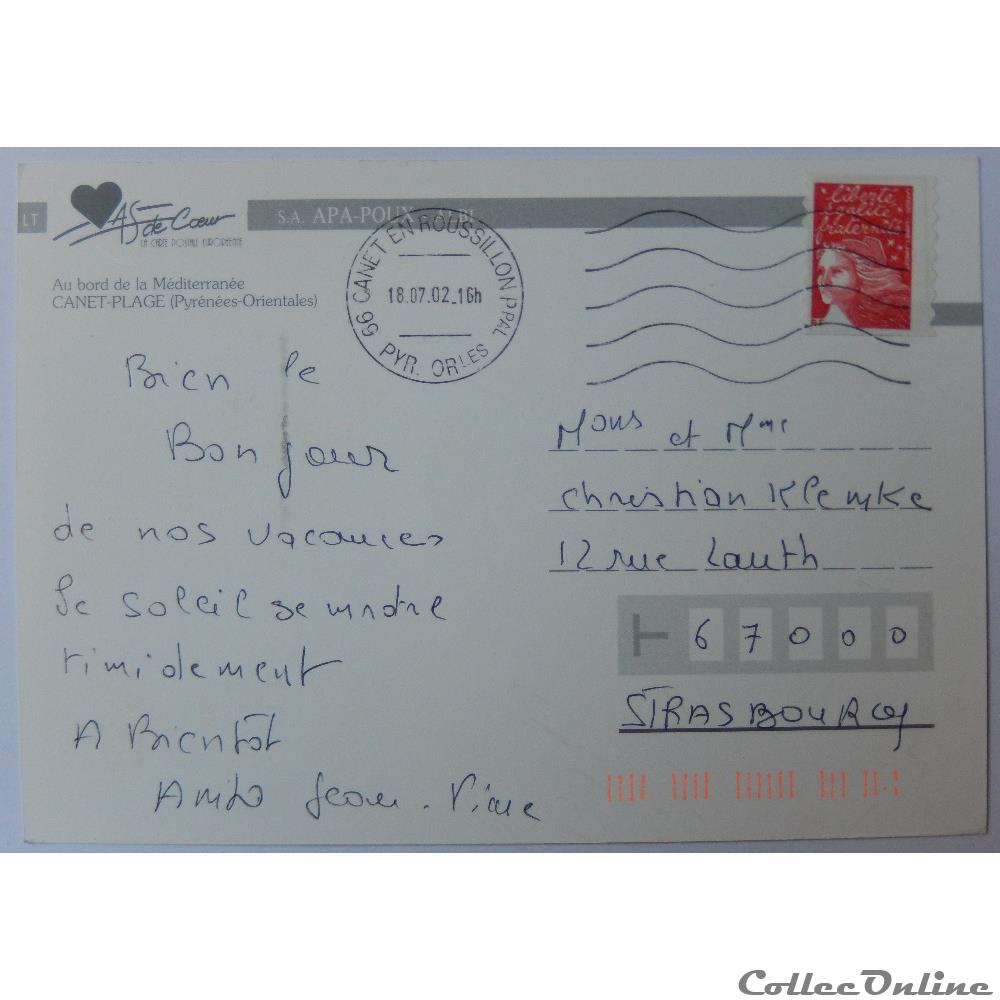 LT
AS de Cœur
LA CARTE POSTALE EUROPÉENNE
S.A. APA-POUX
Au bord de la Méditerranée
CANET-PLAGE (Pyrénées-Orientales)
66 CANET EN ROUSSILLON PPAL
18.07.02_16h
PYR. ORLES
liberté
égalité
fraternité
RF
Bien le
Bonjour
de nos vacances
le soleil se montre
timidement
A Bientôt
Mons et Mme
christian Klemke
12 rue Lauth
67000
STRASBOURG
CollecOnline